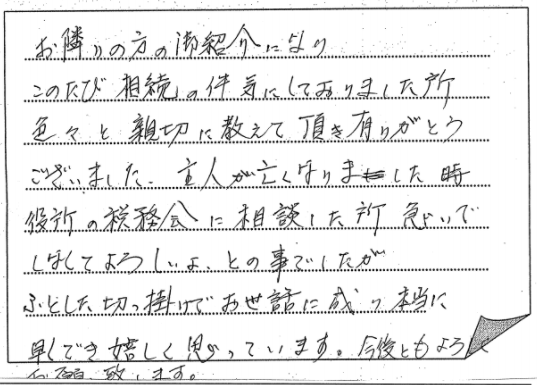 お隣りの方の御紹介になり
このたび相続の件気にしておりました所
色々と親切に教えて頂き有りがとう
ございました。主人が亡くなりました時
役所の税務会に相談した所 急いで
しなくてよろしいよ、との事でしたが
ふとした切っ掛けでお世話に成り本当に
早くでき嬉しく思っています。今後ともよろしく
お願い致します。